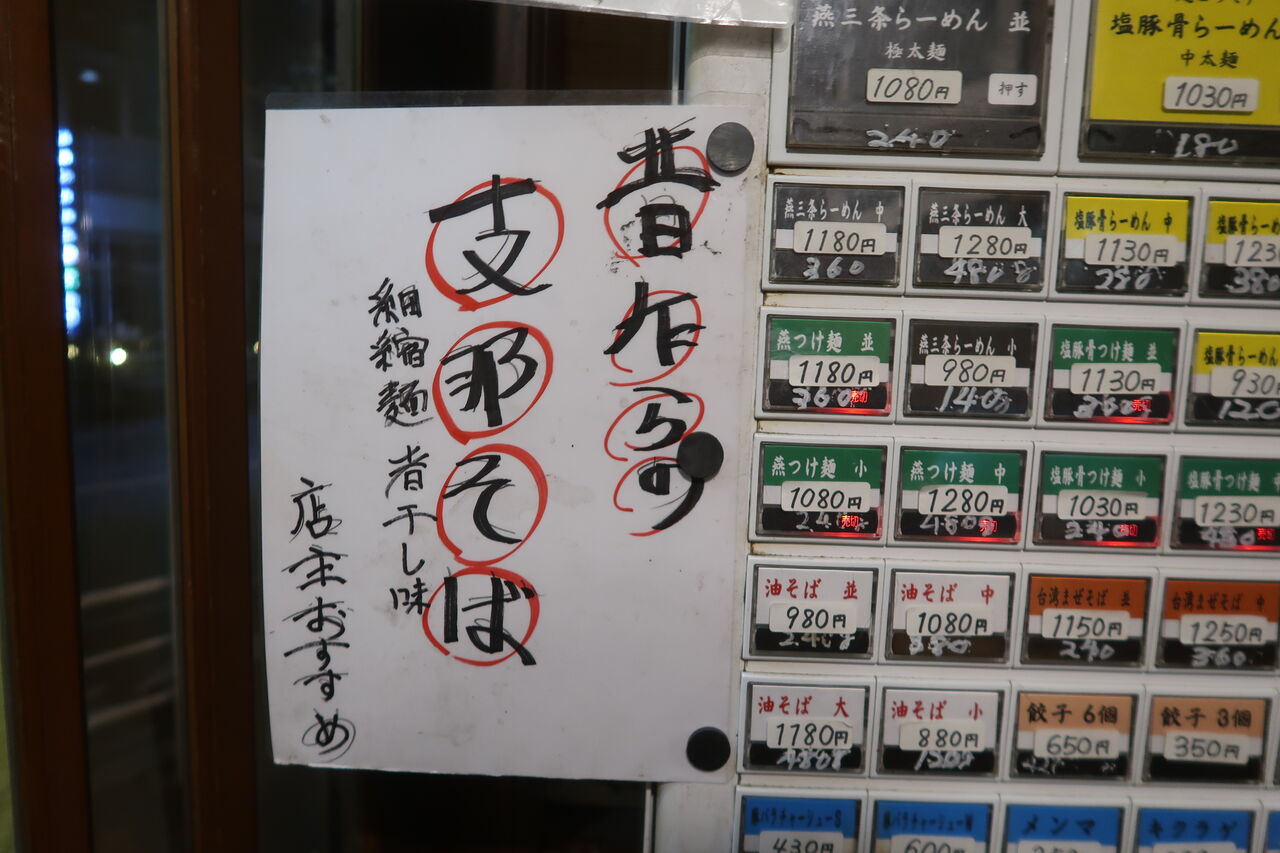 昔乍らの
支那そば
細縮麺 煮干し味
店主おすすめ
燕三条らーめん 並
極太麺
1080円
押す
240
塩豚骨らーめん
中太麺
1030円
180
燕三条らーめん 中
1180円
360
燕三条らーめん 大
1280円
480g
塩豚骨らーめん 中
1130円
280
塩豚骨
380
燕つけ麺 並
1180円
360g
売切
燕三条らーめん 小
980円
140g
塩豚骨つけ麺 並
1130円
360g
売切
塩豚骨らーめん
930
120
燕つけ麺 小
1080円
240g
売切
燕つけ麺 中
1280円
480g
売切
塩豚骨つけ麺 小
1030円
240g
売切
塩豚骨つけ麺
1230円
480g
売切
油そば 並
980円
240g
油そば 中
1080円
380g
台湾まぜそば 並
1150円
240
台湾まぜそば 中
1250円
360
油そば 大
1180円
480g
油そば 小
880円
150g
餃子 6個
650円
餃子 3個
350円
豚バラチャーシューS
430円
豚バラチャーシューM
600円
メンマ
キクラゲ